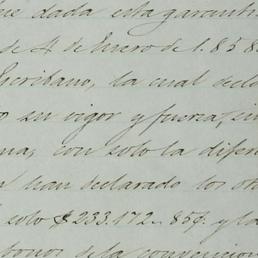 que dada esta garantí
de 4 de Enero de 1.858
Escribano, la cual decl
su vigor y fuerza, sin
con solo la difere
han declarado los ot
solo $ 233.172.. 85 ¢. y la
de la convencion